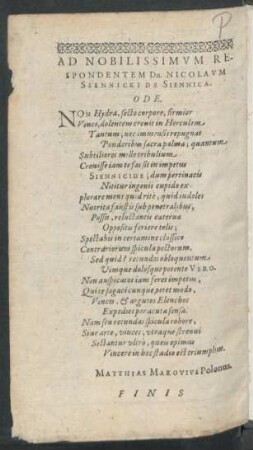 AD NOBILISSIMVM RE-
SPONDENTEM Dn. NICOLAVM
SIENNICKI DE SIENNICA.
ODE.
NON Hydra, secto corpore, firmior
Vinci, dolentem crevit in Herculem
Tantum, nec immensis repugnat
Ponderibus sacra palma; quantum
Subtilioris mille tribulium
Crevisse jam te fas sit in impetus
SIENNICIDE; dum pertinacis
Nititur ingenii cupido ex-
plorare mens quid rite, quid indoles
Nutrita faustis sub penetralibus,
Possit, reluctantis caterva
Opposita feriere telis,
Spectabis in certamine classico
Contrariorum spicula pectorum.
Sed quid? secundus obloquentum
Vimque dolosque potente VERO.
Non auspicatos jam feres impetus,
Quite sagaci cunque petet modo,
Vinces, & argutos Elenchos
Expedies per acuta sensa.
Nam seu secundas spicula robore,
Sive arte, vinces, utraque strenui
Sectantur ultrò, queis opimus
Vincere in hoc stadio est triumphus.
MATTHIAS MAKOVIUS Polonus.
FINIS